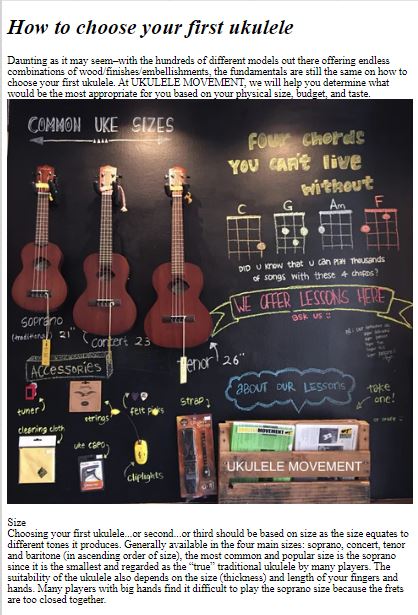 How to choose your first ukulele
Daunting as it may seem–with the hundreds of different models out there offering endless
combinations of wood/finishes/embellishments, the fundamentals are still the same on how to
choose your first ukulele. At UKULELE MOVEMENT, we will help you determine what
would be the most appropriate for you based on your physical size, budget, and taste.
COMMON UKE SIZES
FOUR CHORDS
YOU CAN'T LIVE
WITHOUT
C G Am F
DID U KNOW that U can PLAY THOUSANDS
of SONGS WITH THESE 4 CHORDS?
WE OFFER LESSONS HERE
ask us :)
soprano
(traditional) 21"
Concert 23
Tenor 26"
ACCESSORIES
tuner
strings
felt picks
strap
cleaning cloth
uke capo
cliplights
about OUR Lessons
take
one!
or more
MOVEMENT
UKULELE MOVEMENT
Size
Choosing your first ukulele...or second...or third should be based on size as the size equates to
different tones it produces. Generally available in the four main sizes: soprano, concert, tenor
and baritone (in ascending order of size), the most common and popular size is the soprano
since it is the smallest and regarded as the “true” traditional ukulele by many players. The
suitability of the ukulele also depends on the size (thickness) and length of your fingers and
hands. Many players with big hands find it difficult to play the soprano size because the frets
are too closed together.